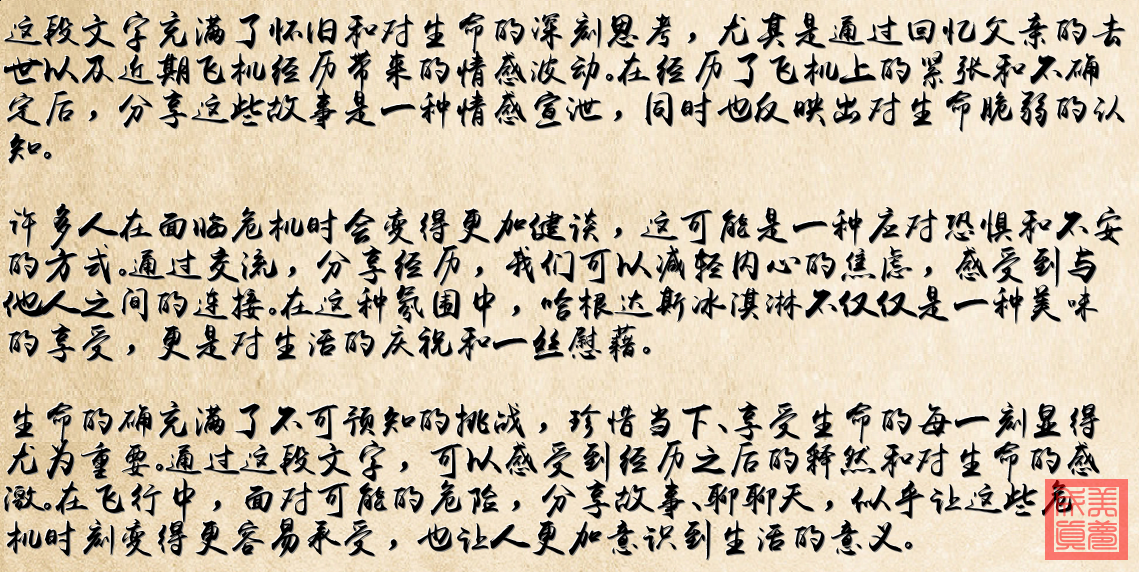 这段文字充满了怀旧和对生命的深刻思考，尤其是通过回忆父亲的去
世以及近期飞机经历带来的情感波动。在经历了飞机上的紧张和不确
定后，分享这些故事是一种情感宣泄，同时也反映出对生命脆弱的认
知。
许多人在面临危机时会变得更加健谈，这可能是一种应对恐惧和不安
的方式。通过交流，分享经历，我们可以减轻内心的焦虑，感受到与
他人之间的连接。在这种氛围中，哈根达斯冰淇淋不仅仅是一种美味
的享受，更是对生活的庆祝和一丝慰藉。
生命的确充满了不可预知的挑战，珍惜当下、享受生命的每一刻显得
尤为重要。通过这段文字，可以感受到经历之后的释然和对生命的感
激。在飞行中，面对可能的危险，分享故事、聊聊天，似乎让这些危
机时刻变得更容易承受，也让人更加意识到生活的意义。